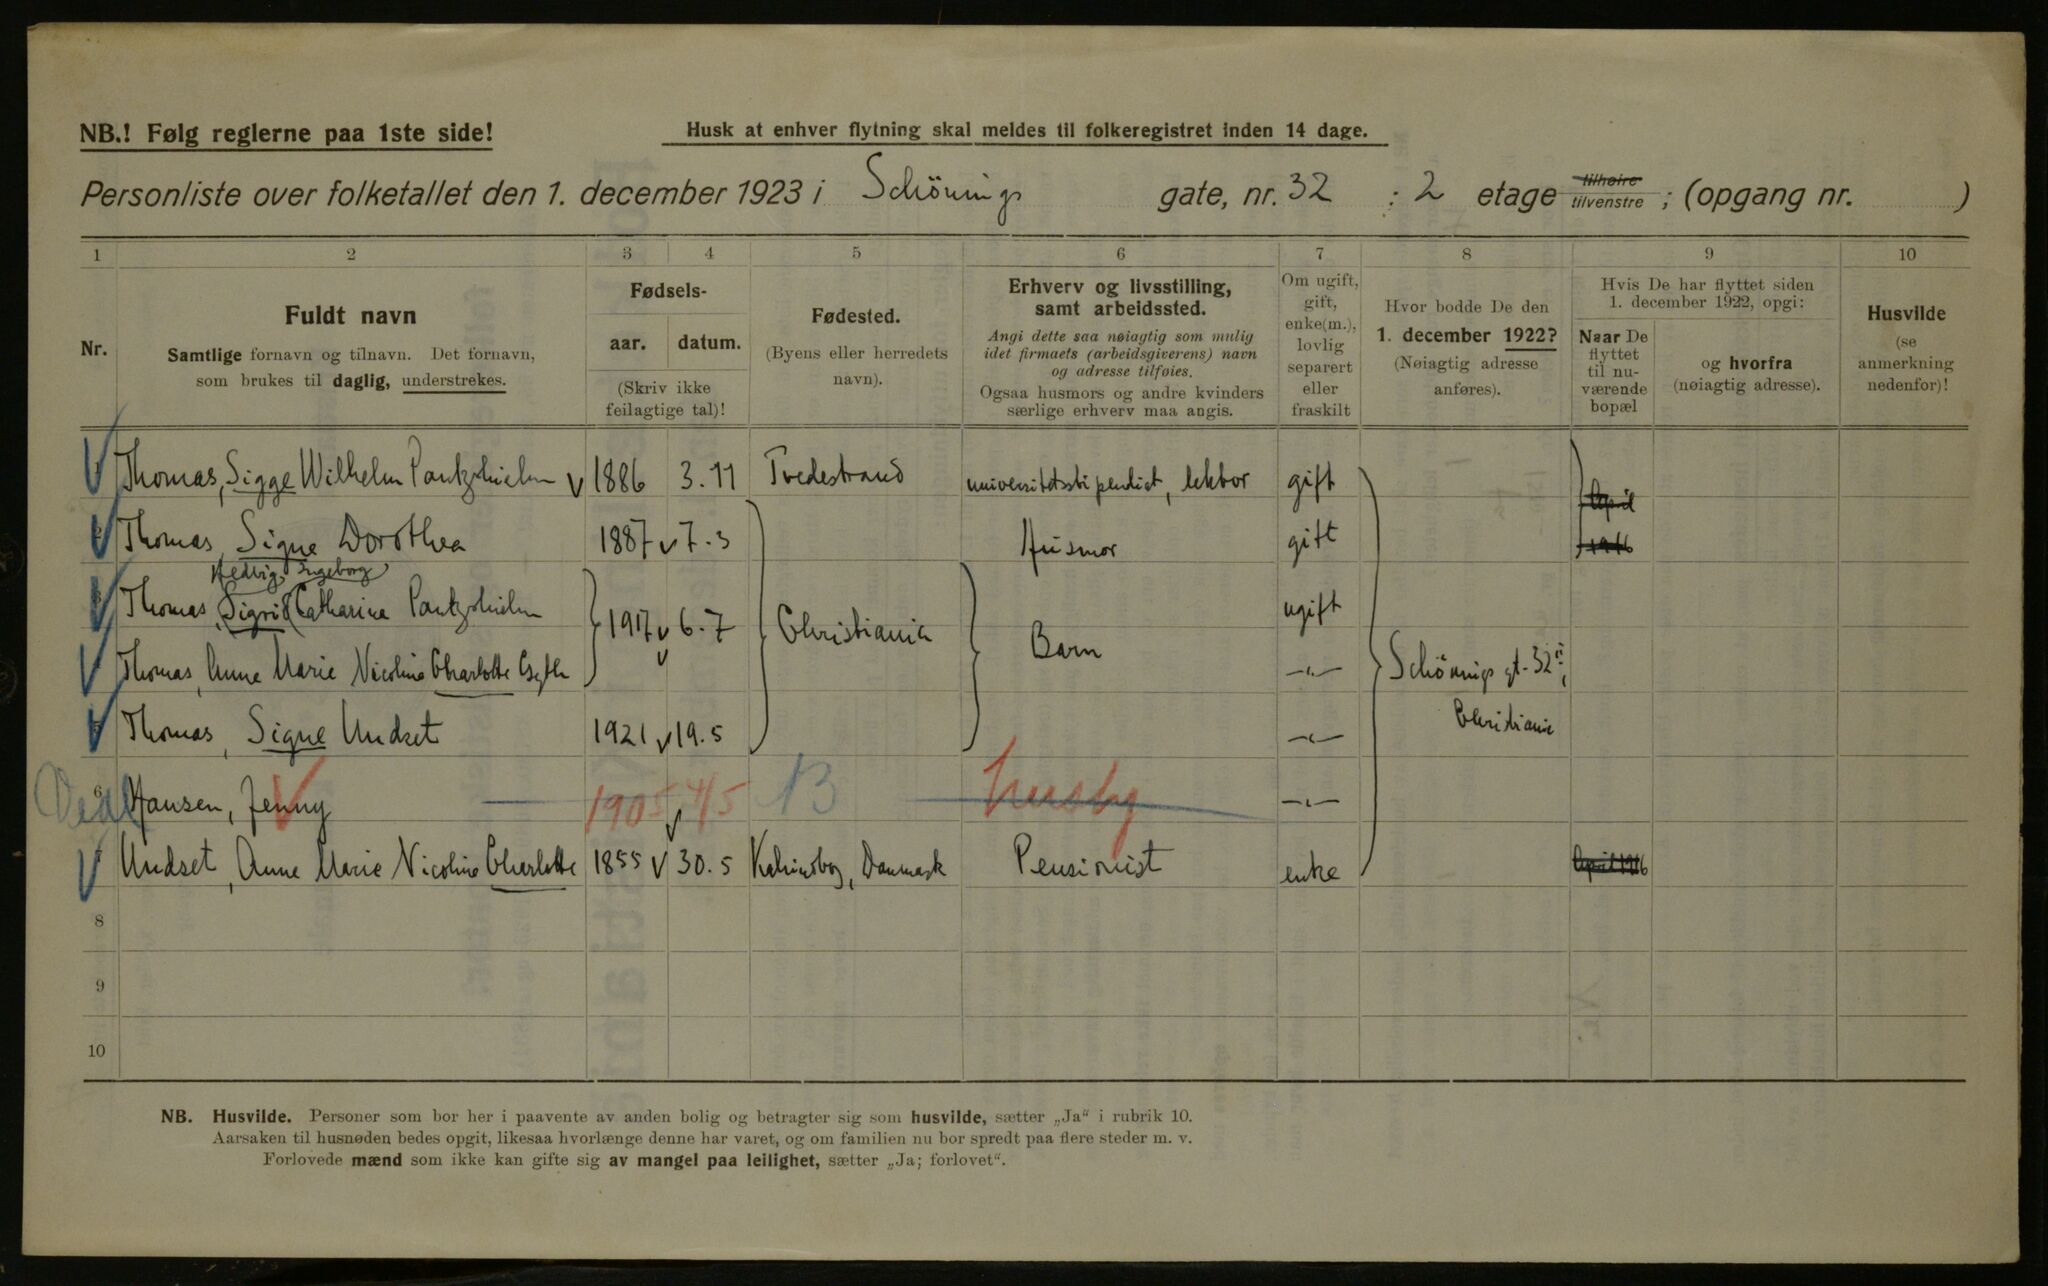 NB.! Følg reglerne paa 1ste side!
Husk at enhver flytning skal meldes til folkeregistret inden 14 dage.
Personliste over folketallet den 1. december 1923 i Schønings gate, nr. 32 : 2 etage tilhøire tilvenstre ; (opgang nr. )
1 2 3 4 5 6 7 8 9 10
Nr.
Fuldt navn
Samtlige fornavn og tilnavn. Det fornavn,
som brukes til daglig, understrekes.
Fødsels-
aar. datum.
(Skriv ikke
feilagtige tal)!
Fødested.
(Byens eller herredets
navn).
Erhverv og livsstilling,
samt arbeidssted.
Angi dette saa nøiagtig som mulig
idet firmaets (arbeidsgiverens) navn
og adresse tilføies.
Ogsaa husmors og andre kvinders
særlige erhverv maa angis.
Om ugift,
gift,
enke(m.),
lovlig
separert
eller
fraskilt
Hvor bodde De den
1. december 1922?
(Nøiagtig adresse
anføres).
Hvis De har flyttet siden
1. december 1922, opgi:
Naar De
flyttet
til nu-
værende
bopæl
og hvorfra
(nøiagtig adresse).
Husvilde
(se
anmerkning
nedenfor)!
1 Thomas, Sigge Wilhelm Pantzshielm 1886 3.11 Tvedestrand universitetsstipendiat, lektor gift April
2 Thomas, Signe Dorothea 1887 7.3 Husmor gift 1916
Hedvig Ingeborg
3 Thomas, (Sigrid) Catharina Pantzshielm 1917 6.7 Christiania Barn ugift
4 Thomas, Anne Marie Nicoline Charlotte -"- Schönings gt. 32 II,
5 Thomas, Signe Undset 1921 19.5 -"- Christiania
6 Hansen, Jenny 1905 4/5 B husby -"-
7 Undset, Anne Marie Nicoline Charlotte 1855 30.5 Kalundborg, Danmark Pensionist enke April 1916
8
9
10
NB. Husvilde. Personer som bor her i paavente av anden bolig og betragter sig som husvilde, sætter „Ja“ i rubrik 10.
Aarsaken til husnøden bedes opgit, likesaa hvorlænge denne har varet, og om familien nu bor spredt paa flere steder m. v.
Forlovede mænd som ikke kan gifte sig av mangel paa leilighet, sætter „Ja; forlovet“.